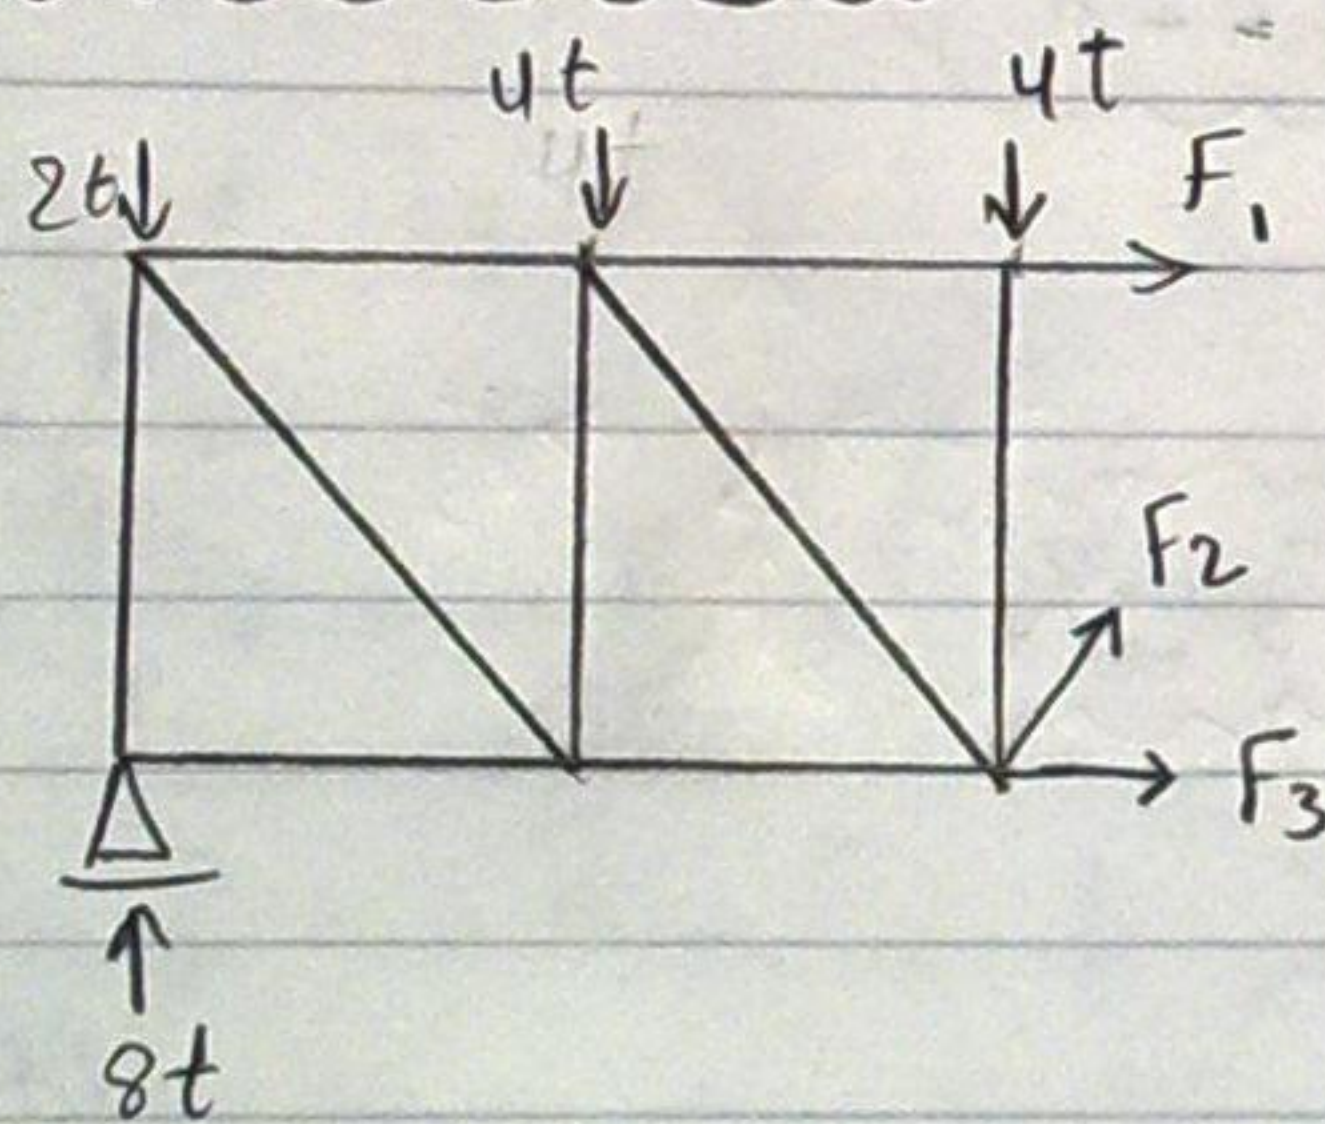 4t 4t
2t F₁
F2
F3
8t